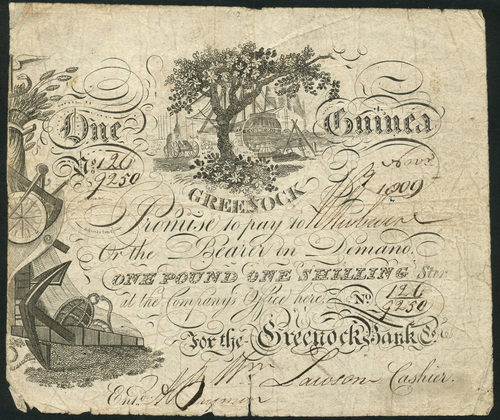 One Guinea
No. 126
9250
GREENOCK
Novr.
1809
Promise to pay to
Or the Bearer in Demand.
ONE POUND ONE SHILLING Ster
at the Company's Office here.
No. 126
9250
For the Greenock Bank Co.
Wm. Lawson Cashier.
Entd.